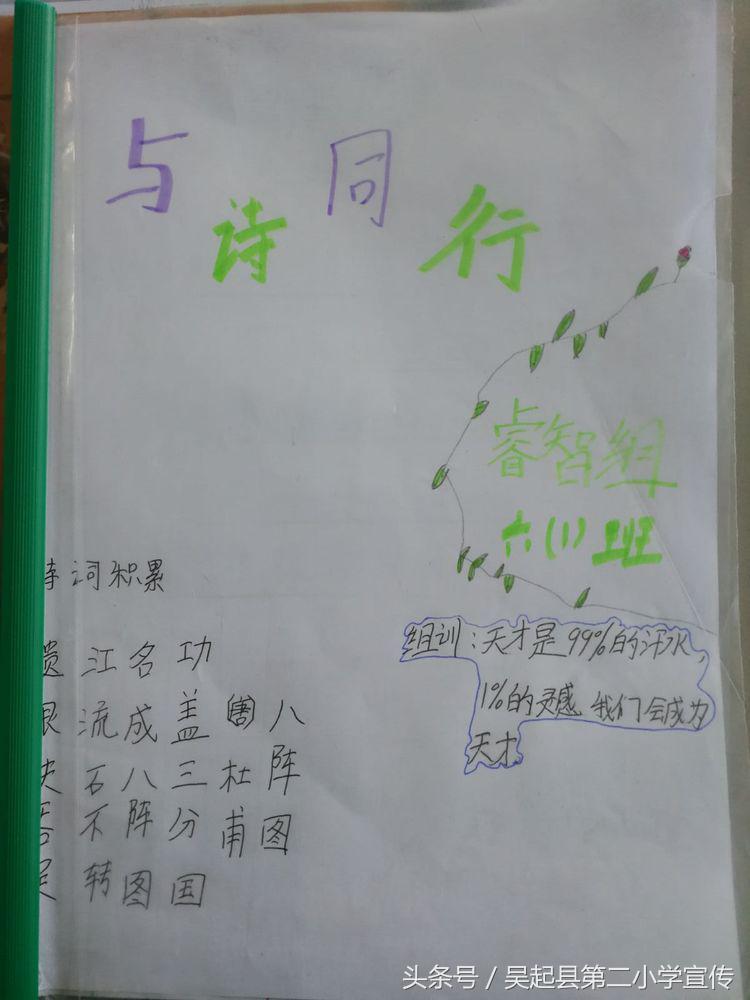 与诗同行
睿智组
六(1)班
组训:天才是99%的汗水,
1%的灵感 我们会成为
天才.
诗词积累
八阵图
杜甫
功盖三分国
名成八阵图
江流石不转
头条号/吴起县第二小学宣传